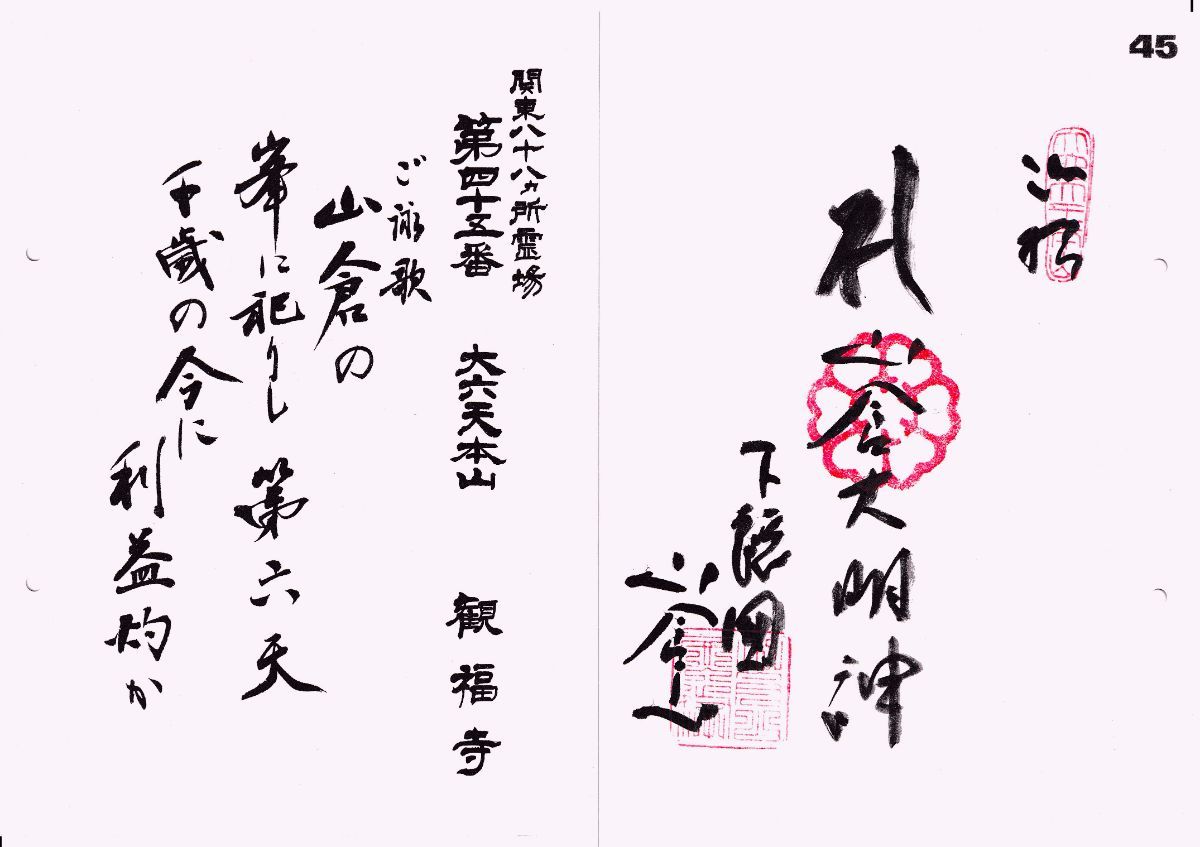 45
札 山倉大明神
下総國
山倉山
関東八十八ヵ所霊場
第四十五番 大六天本山 観福寺
ご詠歌
山倉の
峯に祀りし 第六天
千歳の今に
利益灼か